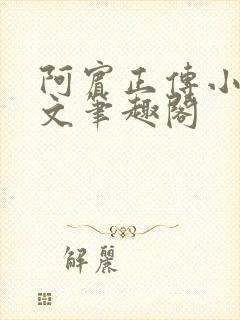 阿賓正傳小
文筆趣閣
解麗